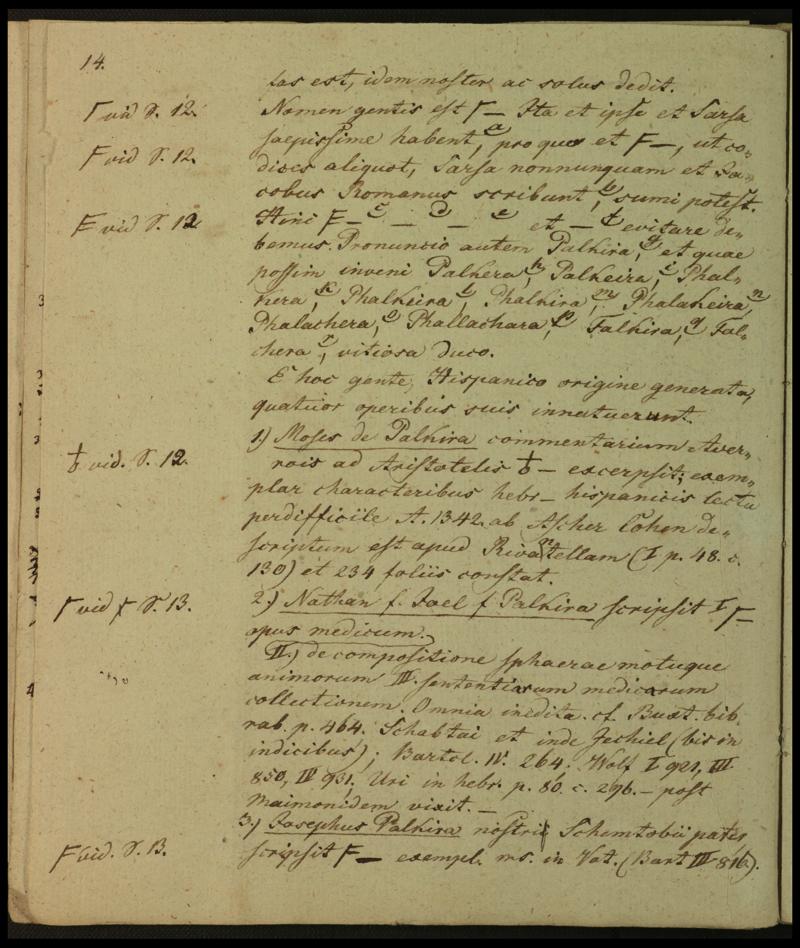 14.
tas est, idem noster ac solus dedit.
Γ vid S. 12. Nomen gentis est Γ— Ita et ipse et Sarsa
saepissime habent, a pro quo et F—, ut co=
F vid S. 12. dices aliquot, Sarsa nonnunquam et Ja=
cobus Romanus scribunt, b sumi potest.
E vid S. 12 Hini F— c — d — e et — f evitare de=
bemus. Pronuncio autem Palkira, g et quae
possim inveni Palkera, h Palkeira, i Phal=
kera, k Phalkeira, l Phalkira, m Phalakeira, n
Phalachera, o Phallachara, p Falkira, q Fal=
chera r, vitiosa duco.
E hoc gente, Hispanico origine generata,
quatuor operibus suis innotuerunt.
1.) Moses de Palkira commentarium Aver=
ƀ vid. S. 12. rois ad Aristotelis ƀ— excerpsit; exem=
plar characteribus hebr— hispanicis lectu
perdifficile A. 1342. ab Ascher Cohen de=
scriptum est apud Rivantellam (I p. 48. c.
130) et 234 foliis constat.
Γ vid f S. 13. 2.) Nathan f. Joel f Palkira scripsit I Γ—
opus medicum.
II.) de compositione sphaerae motuque
animorum III. sententiarum medicarum
collectionem. Omnia inedita. cf. Buxt. bib.
rab. p. 464. Schabtai et inde Jechiel (bis in
indicibus); Bartol. IV. 264. Wolf I 921, III
850, IV 931, Uri in hebr. p. 80. c. 296. — post
Maimonidem vixit. —
3.) Josephus Palkira nostri Schemtobii pater
F vid. S. 13. scripsit F— exempl. ms. in Vat. (Bart III 816).